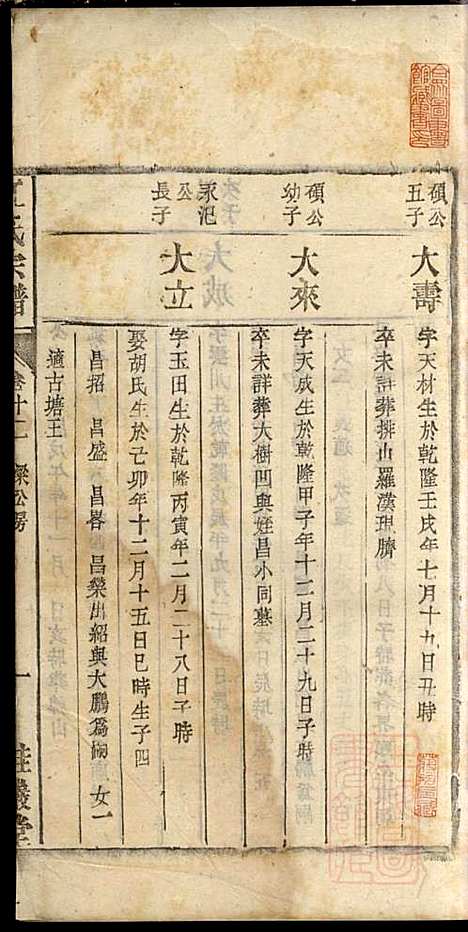 碩公
五子
大壽
字天材生於乾隆壬戌年七月十九日丑時
卒未詳葬排山羅漢現臍
碩公
幼子
大來
字天成生於乾隆甲子年十二月二十九日子時
卒未詳葬大樹凹與姪昌外同墓
永汜
公
長子
大立
字玉田生於乾隆丙寅年二月二十八日子時
娶胡氏生於己卯年十二月十五日巳時生子四
昌招 昌盛 昌畧 昌榮出紹與大鵬為嗣 女一
適古塘王
氏宗譜
卷十二
公房
一